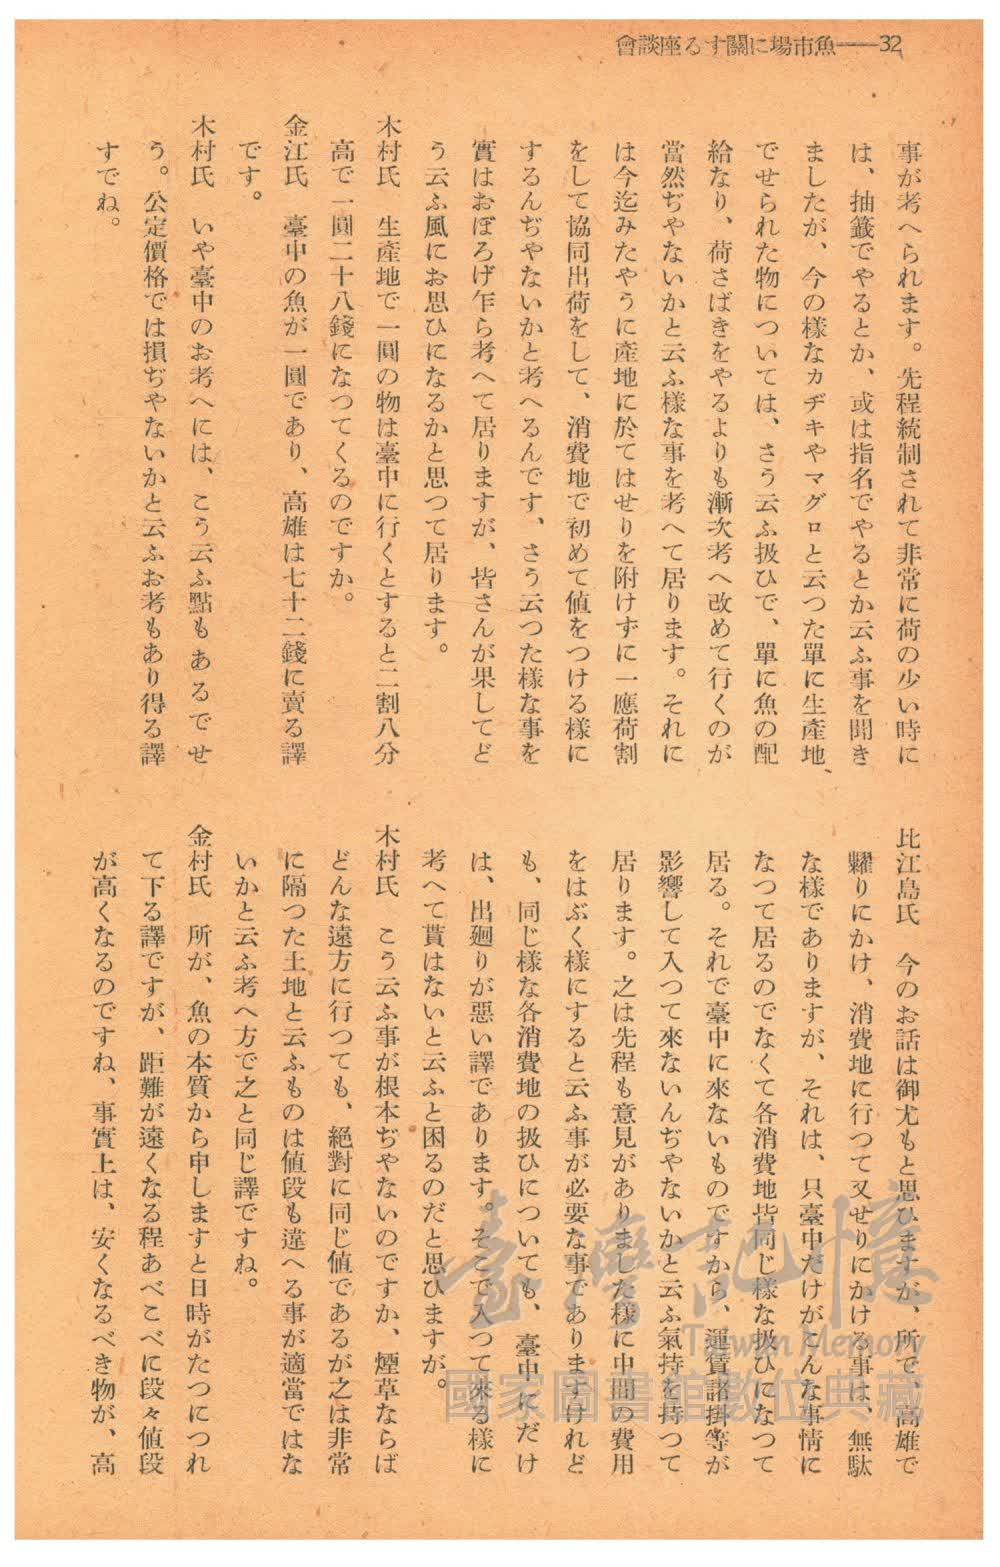 會談座るす關に場市魚――32
事が考へられます。先程統制されて非常に荷の少い時に
は、抽籤でやるとか、或は指名でやるとか云ふ事を聞き
ましたが、今の樣なカヂキやマグロと云つた單に生產地
でせられた物については、さう云ふ扱ひで、單に魚の配
給なり、荷さばきをやるよりも漸次考へ改めて行くのが
當然ぢやないかと云ふ樣な事を考へて居ります。それに
は今迄みたやうに產地に於てはせりを附けずに一應荷割
をして協同出荷をして、消費地で初めて値をつける樣に
するんぢやないかと考へるんです、さう云つた樣な事を
實はおぼろげ乍ら考へて居りますが、皆さんが果してど
う云ふ風にお思ひになるかと思つて居ります。
木村氏　生產地で一圓の物は臺中に行くとすると二割八分
高で一圓二十八錢になつてくるのですか。
金江氏　臺中の魚が一圓であり、高雄は七十二錢に賣る譯
です。
木村氏　いや臺中のお考へには、こう云ふ點もあるでせ
う。公定價格では損ぢやないかと云ふお考もあり得る譯
すでね。
比江島氏　今のお話は御尤もと思ひますが、所で、高雄で
糶りにかけ、消費地に行つて又せりにかける事は、無駄
な樣でありますが、それは、只臺中だけがこんな事情に
なつて居るのでなくて各消費地皆同じ樣な扱ひになつて
居る。それで臺中に來ないものですから、運賃諸掛等が
影響して入つて來ないんぢやないかと云ふ氣持を持つて
居ります。之は先程も意見がありました樣に中間の費用
をはぶく樣にすると云ふ事が必要な事でありますけれど
も、同じ樣な各消費地の扱ひについても、臺中にだけ
は、出廻りが惡い譯であります。そこで入つて來る樣に
考へて貰はないと云ふと困るのだと思ひますが。
木村氏　こう云ふ事が根本ぢやないのですか、煙草ならば
どんな遠方に行つても、絕對に同じ値であるが之は非常
に隔つた土地と云ふものは値段も違へる事が適當ではな
いかと云ふ考へ方で之と同じ譯ですね。
金村氏　所が、魚の本質から申しますと日時がたつにつれ
て下る譯ですが、距難が遠くなる程あべこべに段々値段
が高くなるのですね、事實上は、安くなるべき物が、高
臺灣記憶
Taiwan Memory
國家圖書館數位典藏